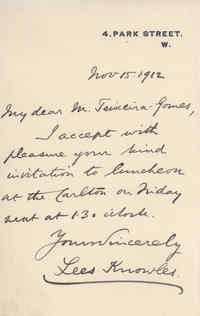 4, PARK STREET.
W.
Nov 15 1912
My dear M. Teixeira-Gomes,
I accept with
pleasure your kind
invitation to luncheon
at the Carlton on Friday
next at 1.30 o'clock.
Yours sincerely
Lees Knowles.